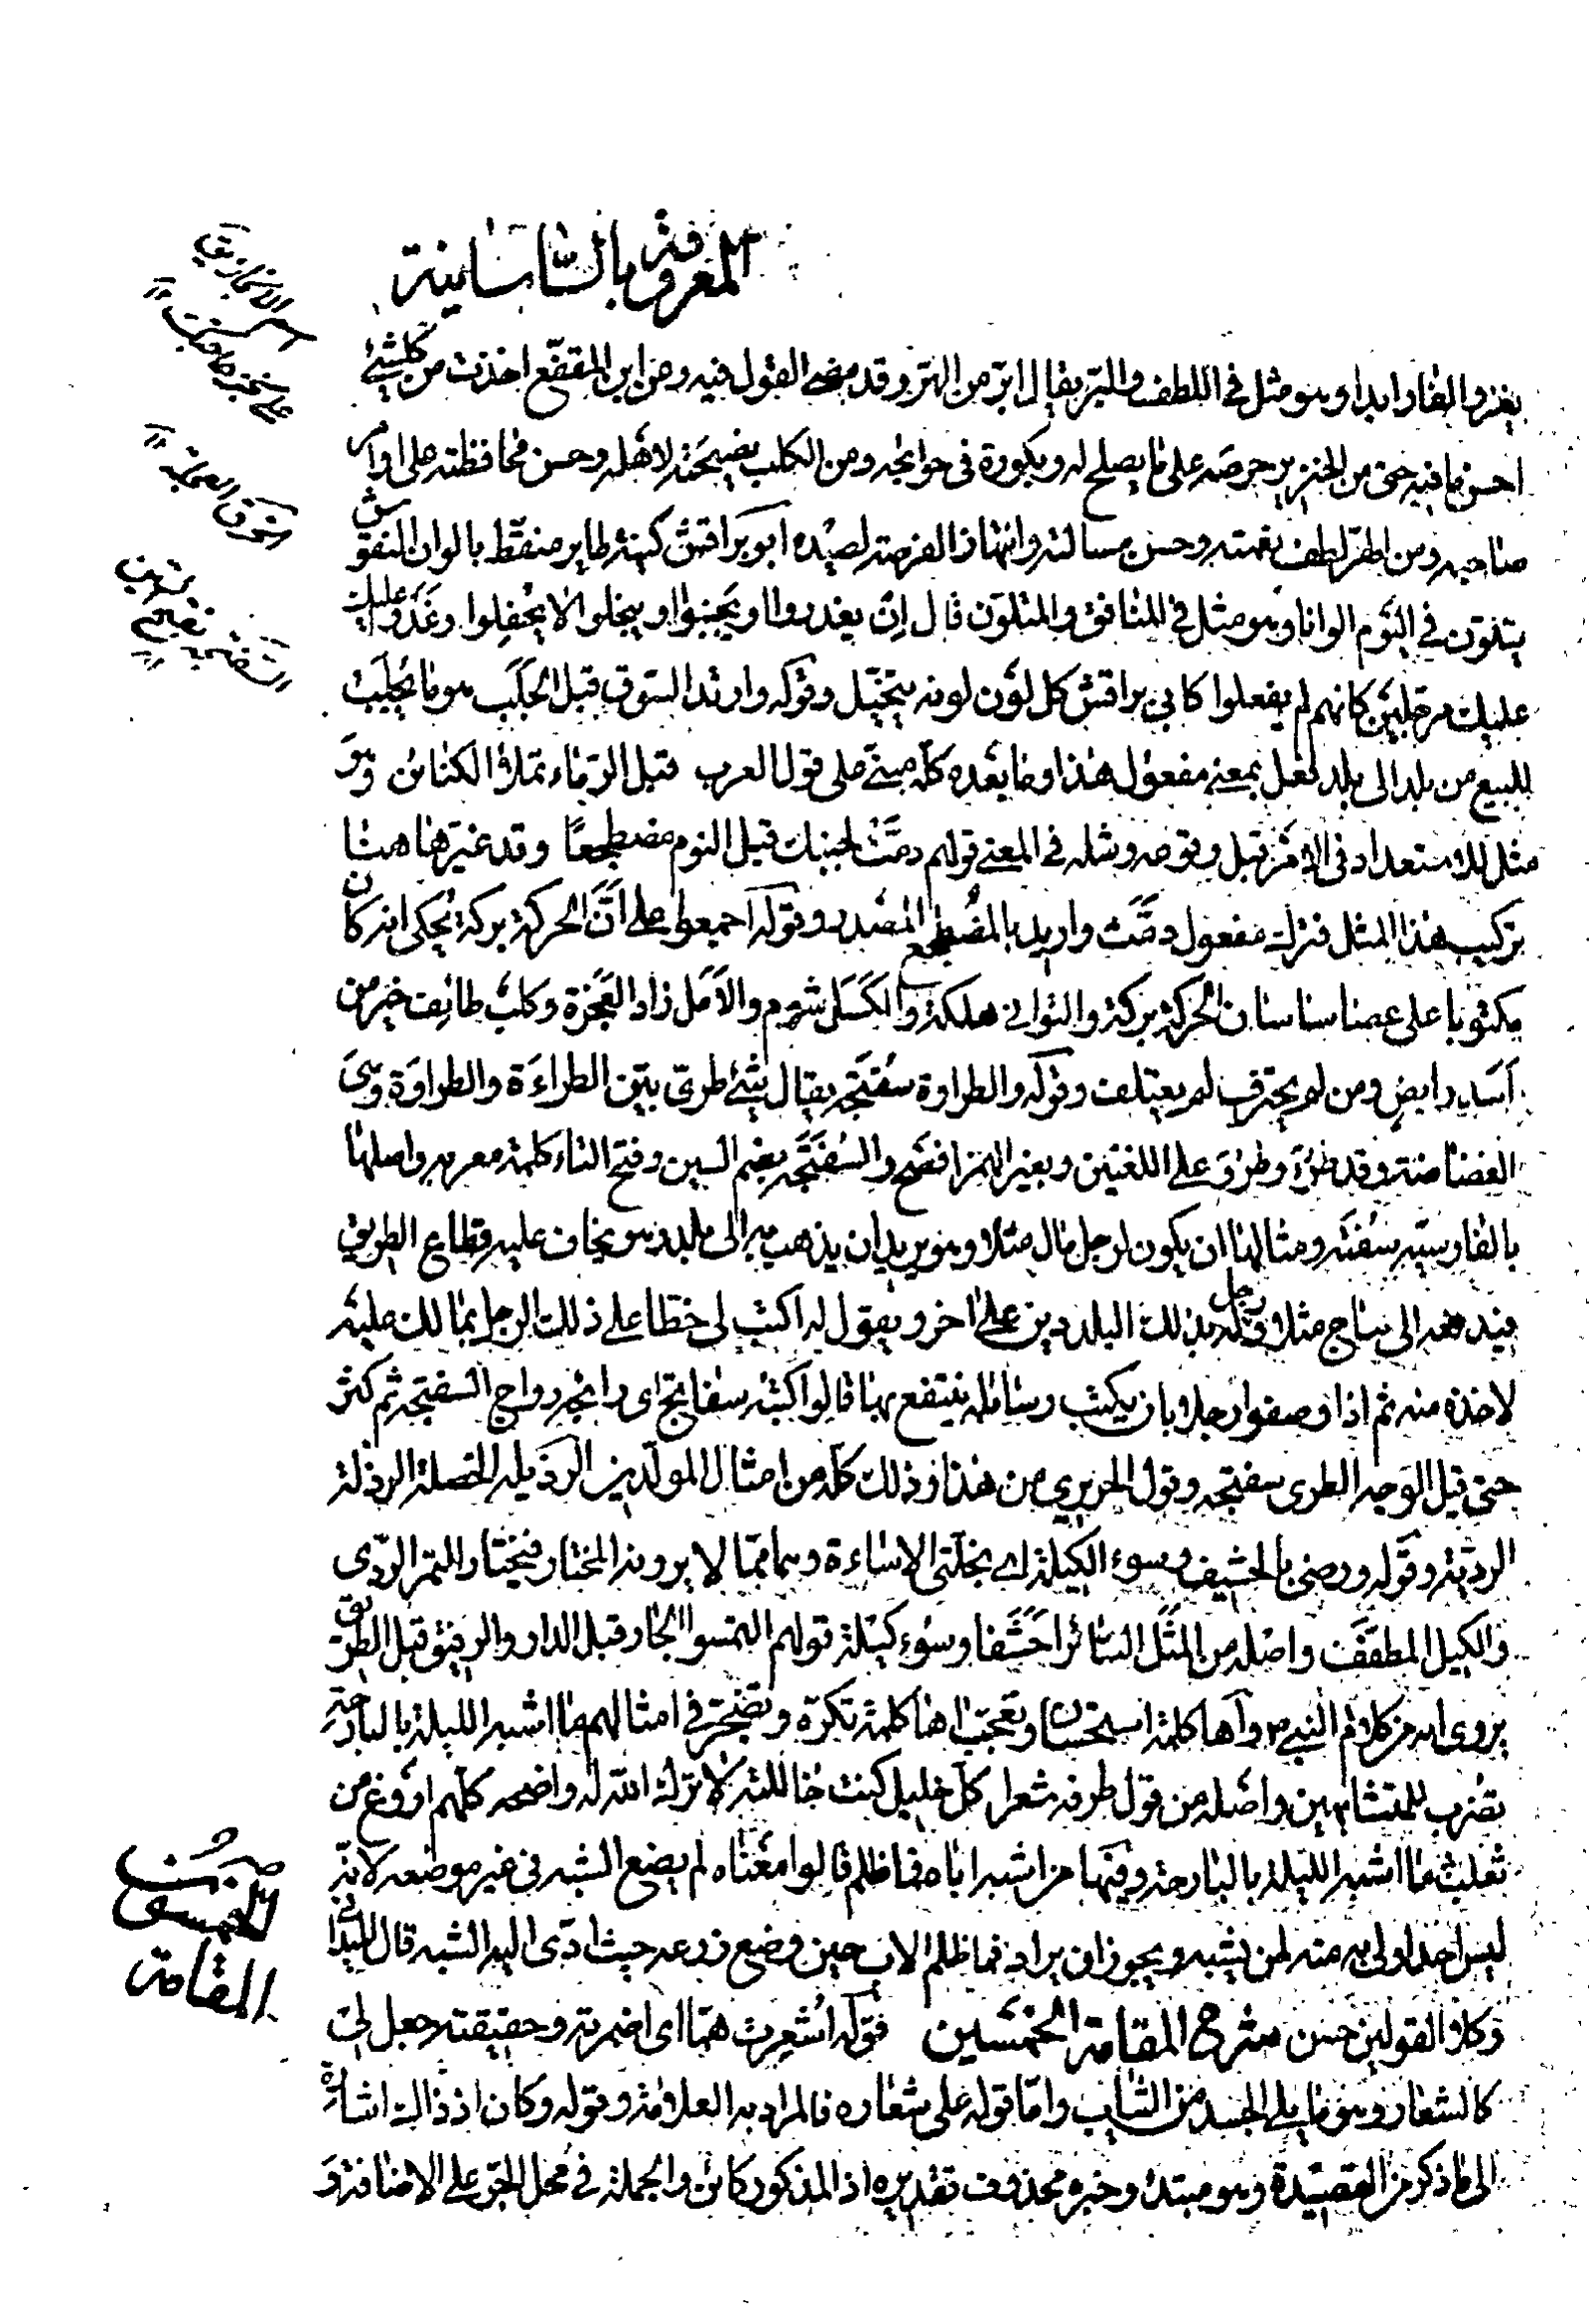 المعروفة بالساسانية
يغزو الفار ابدا وهو مثل في اللطف والبر يقال ابر من الهر وقد مضى القول فيه وعن ابن المقفع اخذت من كل شيء
احسن ما فيه حتى من الخنزير حرصه على ما يصلح له وبكوره في حوايجه ومن الكلب نصيحته لاهله وحسن محافظته على اوامر
صاحبه ومن الهر لطف نغمته وحسن مسالته وانتهاز الفرصة لصيده ابو براقش كنية طاير منقط بالوان النقوش
يتلون في اليوم الوانا وهو مثل في المنافق والمتلون قال ان يغدروا او يجبنوا او يبخلوا لا يحفلوا وغدوا عليك
عليك مرجلين كانهم لم يفعلوا كابي براقش كل لون لونه يتخيل وقوله وارتد السوق قبل الجلب هو ما يجلب
للبيع من بلد الى بلد فعل بمعنى مفعول هذا وما بعده كله مبني على قول العرب قبل الرماء تملأ الكنائن وهو
مثل للاستعداد في الامر قبل وقوعه ومثله في المعنى قولهم دمث لجنبك قبل النوم مضطجعا وقد غيرها هنا
تركيب هذا المثل فنزله مفعول دمث واريد بالمضطجع المصدر وقوله اجمعوا على ان الحركة بركة يحكى انه كان
مكتوبا على عصا ساسان الحركة بركة والتواني هلكة والكسل شوم والامل زاد العجزة وكلب طائف خير من
اسد رابض ومن لم يحترف لم يعتلف وقوله والطراوة سفتجة يقال شيء طري بين الطراءة والطراوة وهي
الغضاضة وقد طرؤ وطرو على اللغتين وبغير الهمز افصح والسفتجة بضم السين وفتح التاء كلمة معربه واصلها
بالفارسيه سفته ومثالها ان يكون لرجل مال مثلا وهو يريد ان يذهب به الى بلد وهو يخاف عليه قطاع الطريق
فيدفعه الى بياع مثلا وله بذلك البلد دين على رجل اخر ويقول له اكتب لى خطا على ذلك الرجل بمالك عليه
لاخذه منه ثم اذا وصفوا رجلا بان يكتب رسائله ينتفع بها قالوا كتبه سفاتج اى رائجه رواج السفتجة ثم كثر
حتى قيل الوجه الطرى سفتجه وقول الحريري من هذا وذلك كله من امثال المولدين الرذيله الخصلة الرذلة
الرديئة وقوله ورضى بالحشف وسوء الكيلة اى بخلتى الاساءة وهما مما لا يرونه المختار فيختار التمر الردى
والكيل المطفف واصله من المثل السائر احشفا وسوء كيلة قولهم التمسوا الجار قبل الدار والرفيق قبل الطريق
يروى انه من كلام النبي م واها كلمة استحسان وتعجب اها كلمة تكره وتضجر في امثالهم ما اشبه الليلة بالبارحة
يضرب للمتشابهين واصله من قول طرفه شعر كل خليل كنت خاللته لا ترك الله له واضحه كلهم اروغ من
ثعلب ما اشبه الليلة بالبارحة وفيها من اشبه اباه فما ظلم قالوا معناه لم يضع الشبه في غير موضعه لانه
ليس احد اولى به منه لمن يشبه ويجوز ان يراد فما ظلم الاب حين وضع زرعه حيث ادى اليه الشبه قال الميداني
وكلا القولين حسن شرح المقامة الخمسين قوله اشعرت هما اى اضمرته وحقيقته جعل لي
كالشعار وهو ما يلي الجسد من الثياب واما قوله على شعاره فالمراد به العلامة وقوله وكان اذ ذاك اشارة
الى ما ذكر من القصيدة وهو مبتدأ وخبره محذوف تقديره اذ المذكور كائن والجملة في محل الجر على الاضافة و
المقامة
الخمسون